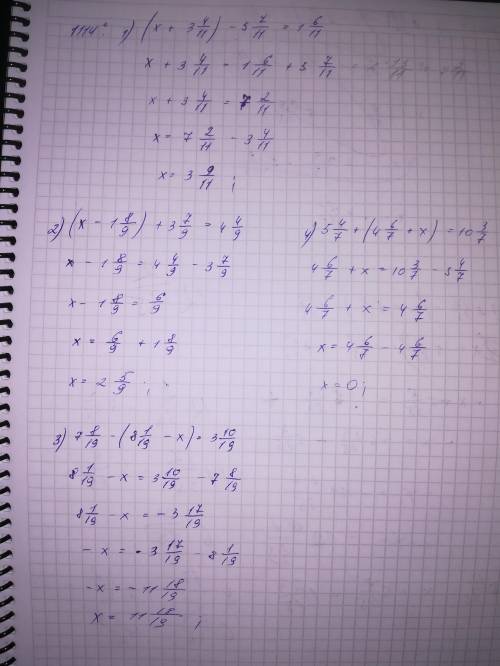 1114. 1) (x + 3 4/11) - 5 7/11 = 1 6/11
x + 3 4/11 = 1 6/11 + 5 7/11
x + 3 4/11 = 7 2/11
x = 7 2/11 - 3 4/11
x = 3 9/11 ;
2) (x - 1 8/9) + 3 7/9 = 4 4/9
x - 1 8/9 = 4 4/9 - 3 7/9
x - 1 8/9 = 6/9
x = 6/9 + 1 8/9
x = 2 5/9 ;
4) 5 4/7 + (4 6/7 + x) = 10 3/7
4 6/7 + x = 10 3/7 - 5 4/7
4 6/7 + x = 4 6/7
x = 4 6/7 - 4 6/7
x = 0 ;
3) 7 8/19 - (8 1/19 - x) = 3 10/19
8 1/19 - x = 3 10/19 - 7 8/19
8 1/19 - x = - 3 17/19
- x = - 3 17/19 - 8 1/19
- x = - 11 18/19
x = 11 18/19 ;